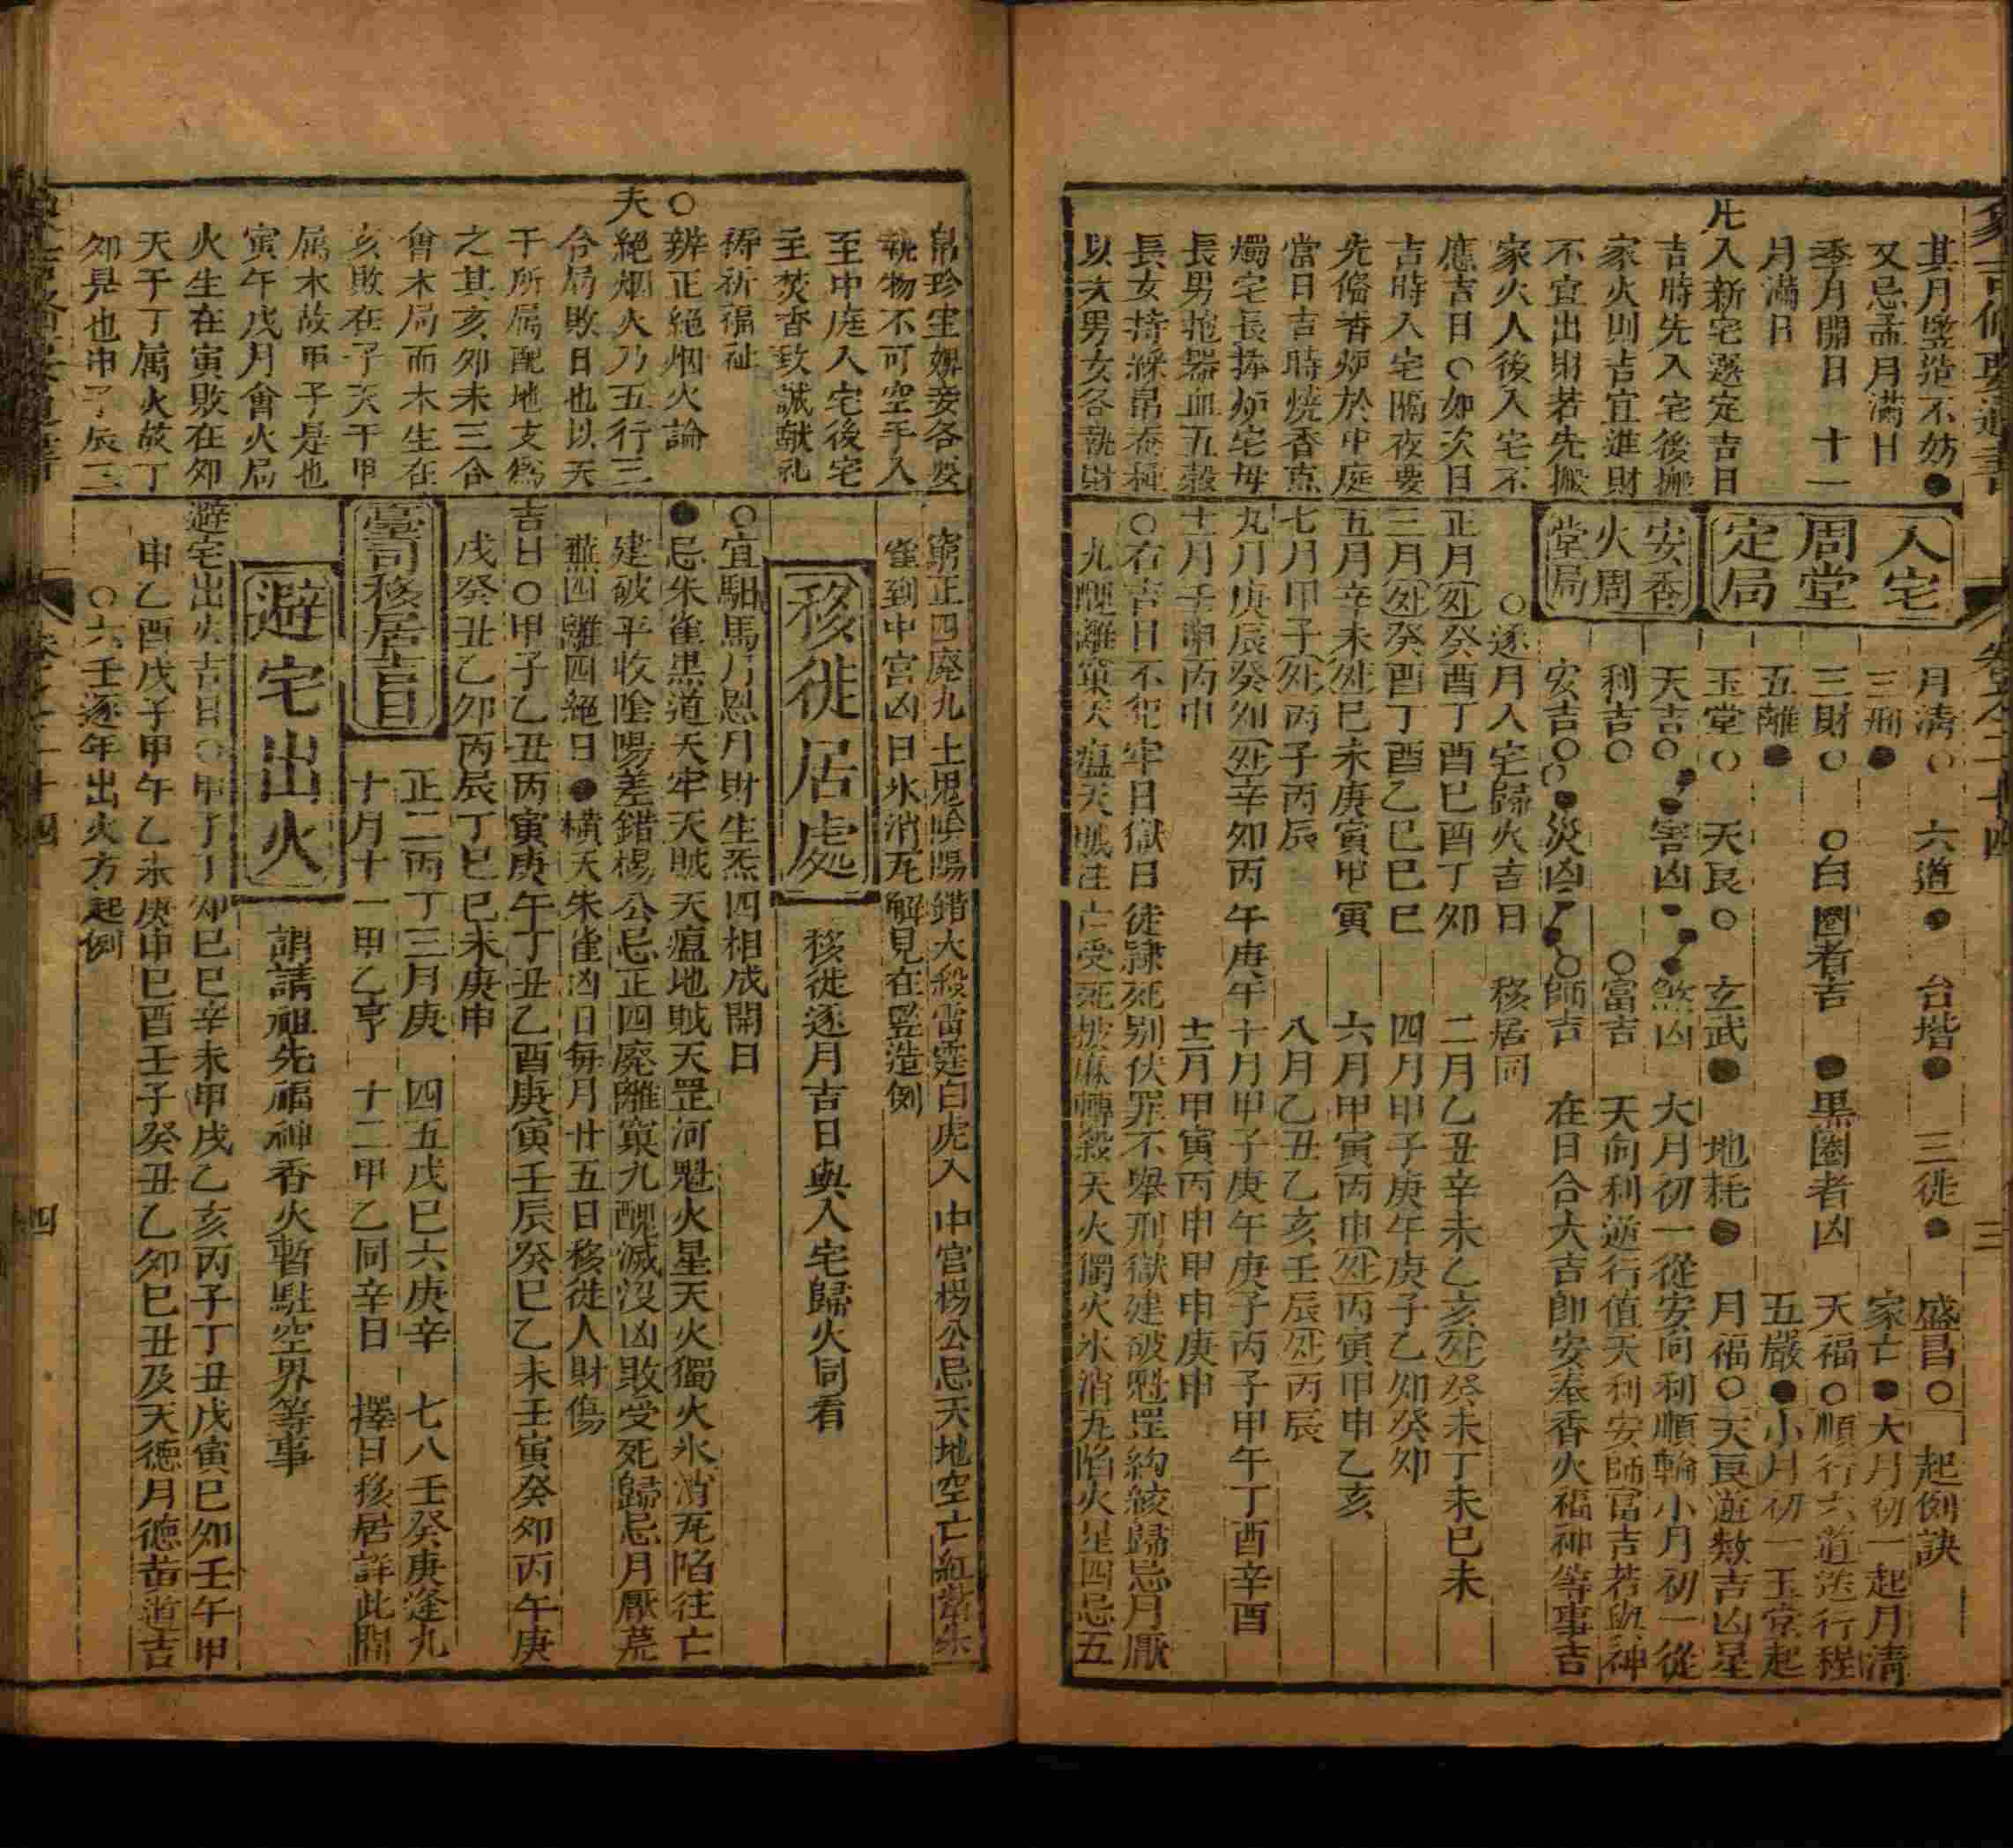 其月竪造不妨●
又忌孟月滿日
季月開日　十一
月滿日
凡入新宅選定吉日
吉時先入宅後搬
家火則吉宜進財
不宜出財若先搬
家火人後入宅不
應吉日○如次日
吉時入宅隔夜要
先偹香炉於中庭
當日吉時燒香点
燭宅長捧炉宅母
長男抱器皿五榖
長女持綵帛蚕種
以次男女各執財
入宅
周堂
定局
安香
火周
堂局
月清○　六道●　台堦●　三徙●　盛昌○　起例訣
三刑●　家亡●大月初一起月清
三財○　○白圈者吉　●黒圈者凶　天福○順行六道送行程
五離●　五嚴●小月初一玉堂起
玉堂○　天良○　玄武●　地耗●　月福○天良遊数吉凶星
天吉○　害凶　煞凶　大月初一從安向利順輪小月初一從
利吉○　○富吉　天向利逆行值天利安師富吉若與神
安吉○　災凶　○師吉　在日合大吉即安奉香火福神等事吉
○逐月入宅歸火吉日　移居同
正月癸酉丁酉巳酉丁夘　二月乙丑辛未乙亥癸未丁未巳未
三月癸酉丁酉乙巳巳巳　四月甲子庚午庚子乙夘癸夘
五月辛未巳未庚寅甲寅　六月甲寅丙申丙寅甲申乙亥
七月甲子丙子丙辰　八月乙丑乙亥壬辰丙辰
九月庚辰癸夘辛夘丙午庚午　十月甲子庚午庚子丙子甲午丁酉辛酉
十一月壬申丙申　十二月甲寅丙申甲申庚申
○右吉日不犯牢日獄日徒隷死别伏罪不舉刑獄建破魁罡絞歸忌月厭
九醜離窠天瘟天賊注亡受死披麻轉殺天火獨火氷消九陷火星四忌五
三
帛珍宝婢妾各要
執物不可空手入
至中庭入宅後宅
主焚香致誠献礼
祷祈福祉
○辨正絕烟火論
夫絕烟火乃五行三
合局敗日也以天
干所属配地支為
之其亥夘未三合
會木局而木生在
亥敗在子天干甲
属木故甲子是也
寅午戌月會火局
火生在寅敗在夘
天干丁属火故丁
夘是也申子辰三
窮正四廢九土鬼陰陽錯大殺雷霆白虎入中宫楊公忌天地空亡紅觜朱
雀到中宫凶日氷消瓦解見在竪造例
移徙居處
移徙逐月吉日與入宅歸火同看
○宜馹馬月恩月財生炁四相成開日
●忌朱雀黒道天牢天賊天瘟地賊天罡河魁火星天火獨火氷消瓦陷往亡
建破平收陰陽差錯楊公忌正四廢離窠九醜滅没凶敗受死歸忌月厭荒
蕪四離四絕日●橫天朱雀凶日每月廿五日移徙人財傷
吉日○甲子乙丑丙寅庚午丁丑乙酉庚寅壬辰癸巳乙未壬寅癸夘丙午庚
戌癸丑乙夘丙辰丁巳巳未庚申
臺司移居吉日
正二丙丁三月庚　四五戊巳六庚辛　七八壬癸庚逢九
十月十一甲乙亨　十二甲乙同辛日　擇日移居詳此間
避宅出火
謂請祖先福神香火暫駐空界等事
避宅出火吉日○甲子丁夘巳巳辛未甲戌乙亥丙子丁丑戊寅巳夘壬午甲
申乙酉戊子甲午乙未庚申巳酉壬子癸丑乙夘巳丑及天德月德黄道吉
○六壬逐年出火方起例
四